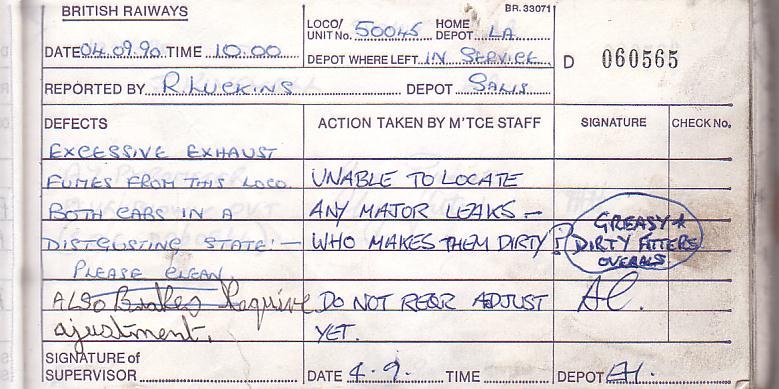 BRITISH RAIWAYS
BR.33071
DATE 04.09.90 TIME 10.00
LOCO/ UNIT No. 50045 HOME DEPOT LA
DEPOT WHERE LEFT IN SERVICE
D 060565
REPORTED BY R. LUCKINS DEPOT SALIS
DEFECTS ACTION TAKEN BY M'TCE STAFF SIGNATURE CHECK No.
EXCESSIVE EXHAUST
FUMES FROM THIS LOCO. UNABLE TO LOCATE
BOTH CABS IN A ANY MAJOR LEAKS —
DISTGUSTING STATE: — WHO MAKES THEM DIRTY ?
GREASY +
DIRTY FITTERS
OVERALS
PLEASE CLEAN.
ALSO Brakes Require DO NOT REQR ADJUST
ajustment. YET.
SIGNATURE of
SUPERVISOR DATE 4.9. TIME DEPOT